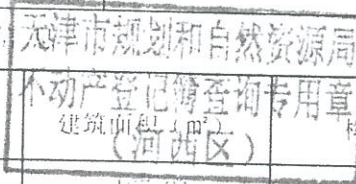 天津市规划和自然资源局
不动产登记簿查询专用章
建筑面积（㎡）
（河西区）